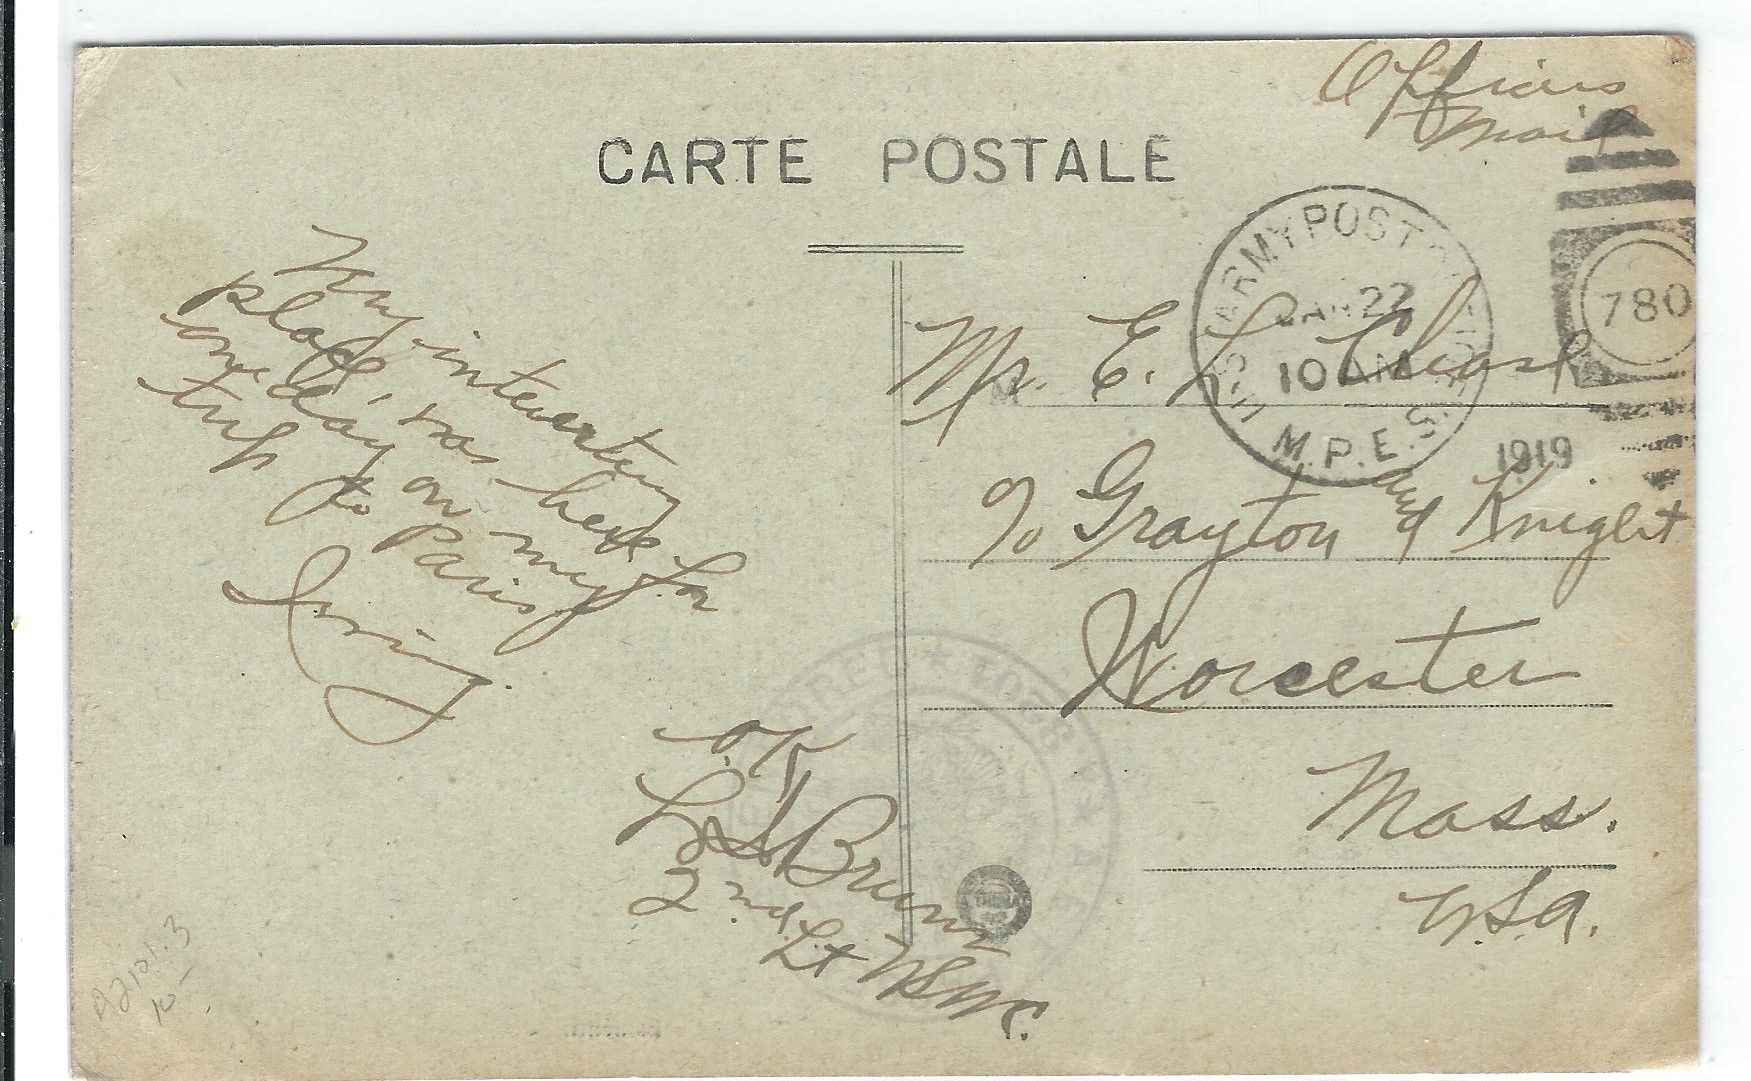 Officers
Mail
CARTE POSTALE
U.S. ARMY POST OFFICE
JAN 22
10 AM
M.P.E.S.
1919
780
Very interesting
place, was here for
one day on my
trip to Paris
Irving.
Mr. E. L. Chase
c/o Grayton and Knight
Worcester
Mass.
USA.
O.K.
L S Brunz
2nd Lt USMC.
A2101.3
10-